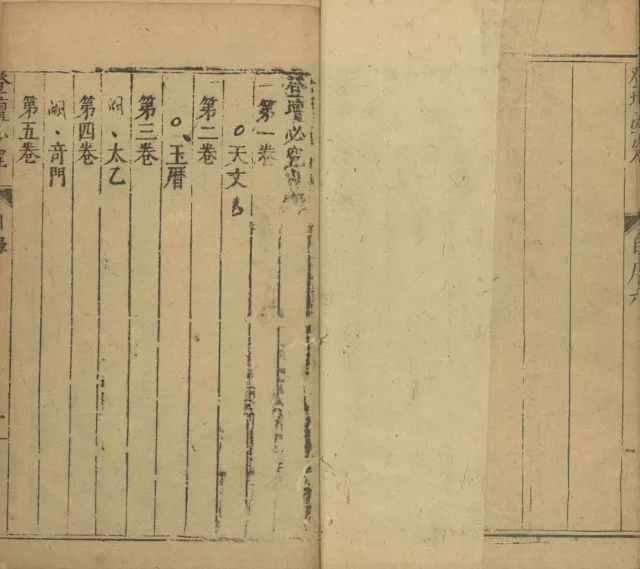 登壇必究
第一卷
天文
第二卷
玉曆
第三卷
太乙
第四卷
奇門
第五卷
登壇必究
目錄